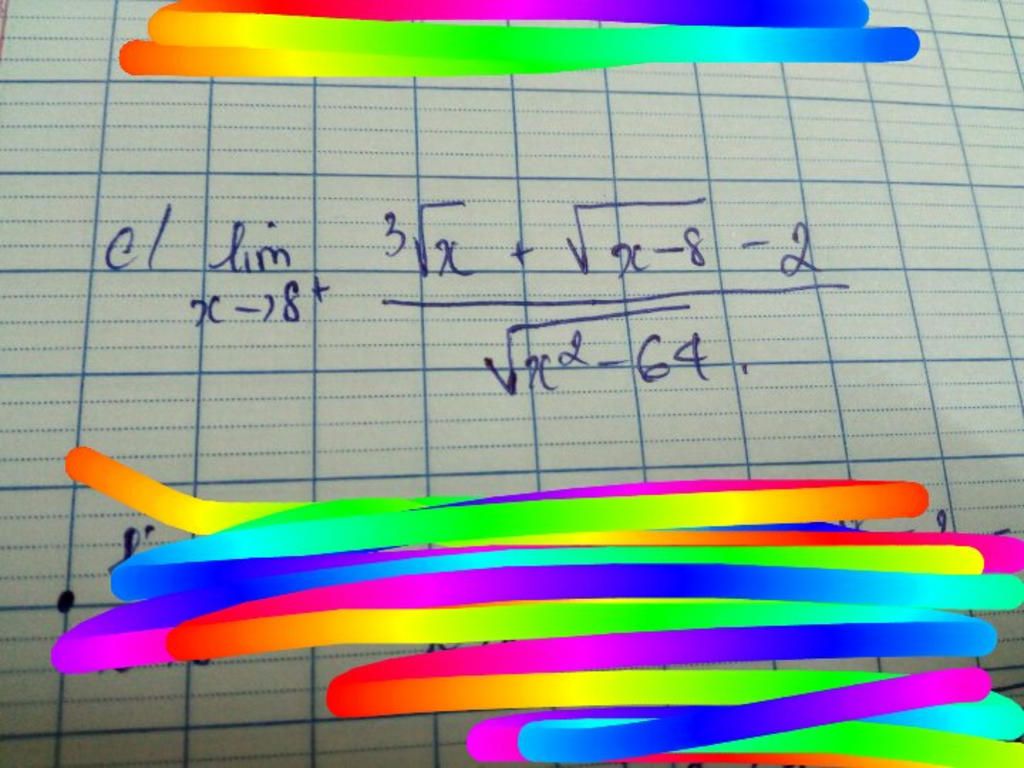 c/ lim x→8⁺ (³√x + √(x-8) - 2) / √(x² - 64) .